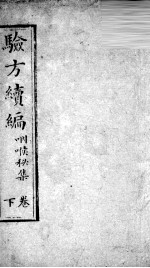 驗方續編
咽喉秘集
卷下